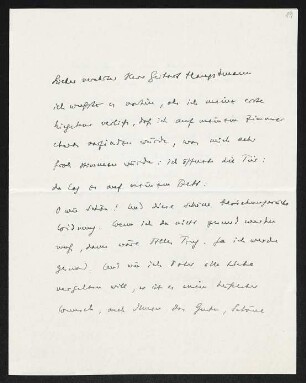 Lieber verehrter Herr Gerhart Hauptmann
ich wusste es vorhin, als ich meine erste
verliess, dass ich auf meinem Zimmer
etwas vorfinden würde, was mich sehr
froh stimmen würde: ich öffnete die Tür:
da lag es auf meinem Bett.
O wie schön! Und diese schöne
Widmung. Wenn ich da nicht gesund werden
muss, dann wäre Alles Trug. Ja ich werde
gesund. Und wie ich Ihnen alle Liebe
vergelten will, so ist es mein
Wunsch, auch Ihnen das Gute, Schöne